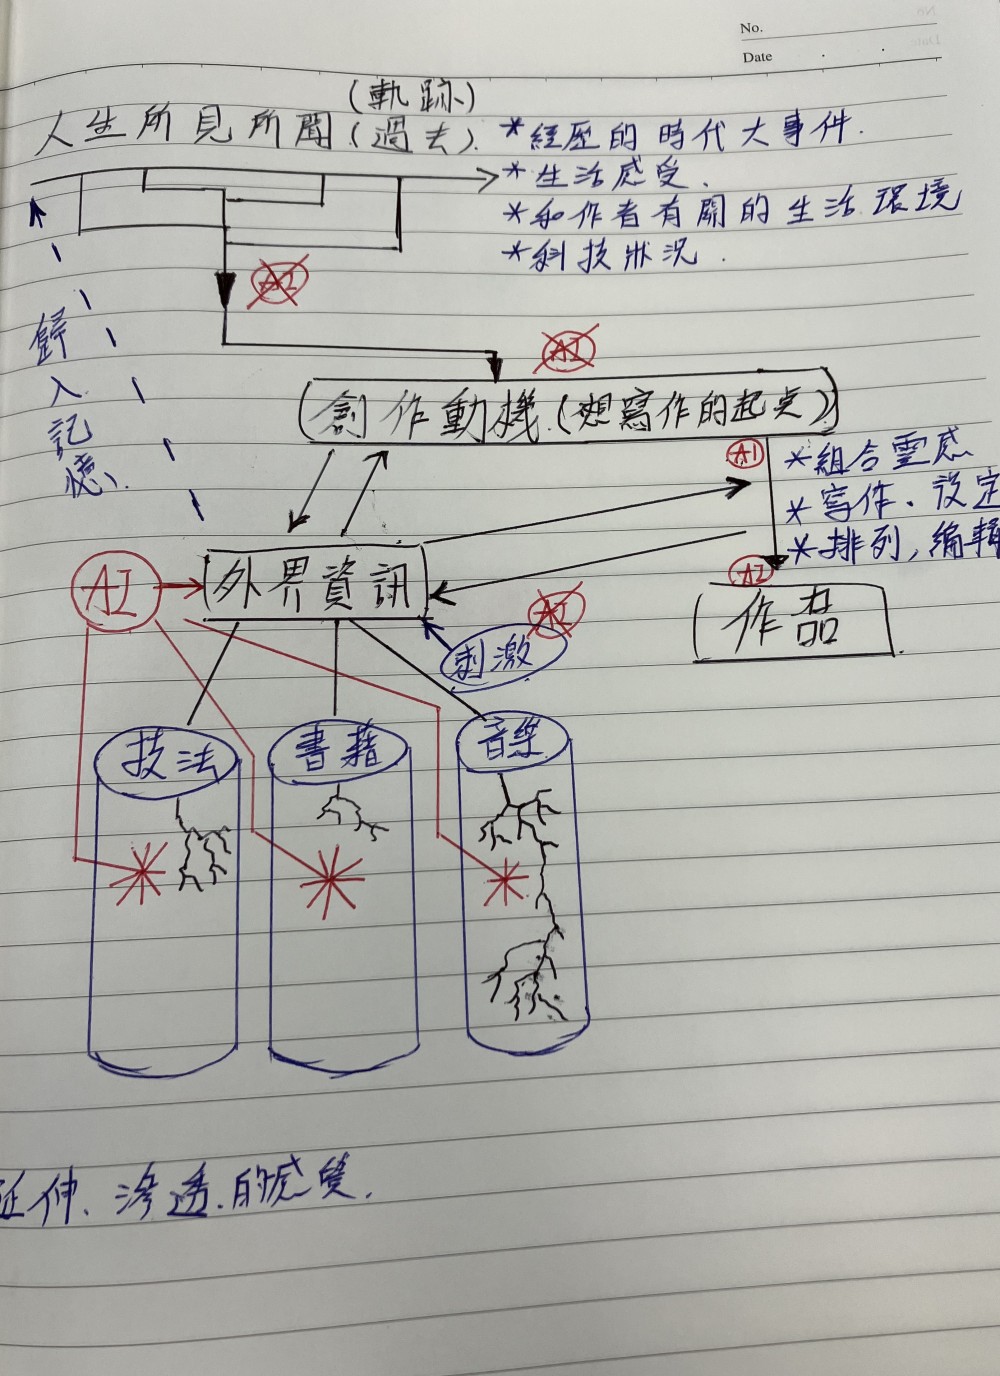 No.
Date
(軌跡)
人生所見所聞(過去)
*經歷的時代大事件.
*生活感受.
*和作者有關的生活環境
*科技狀況.
AI
歸入記憶.
AI
創作動機.(想寫作的起点)
AI
*組合靈感
*寫作、設定
*排列,編輯
AI
外界資訊
AI
AI
作品
刺激
技法
書籍
音樂
延伸、滲透.的感覺.